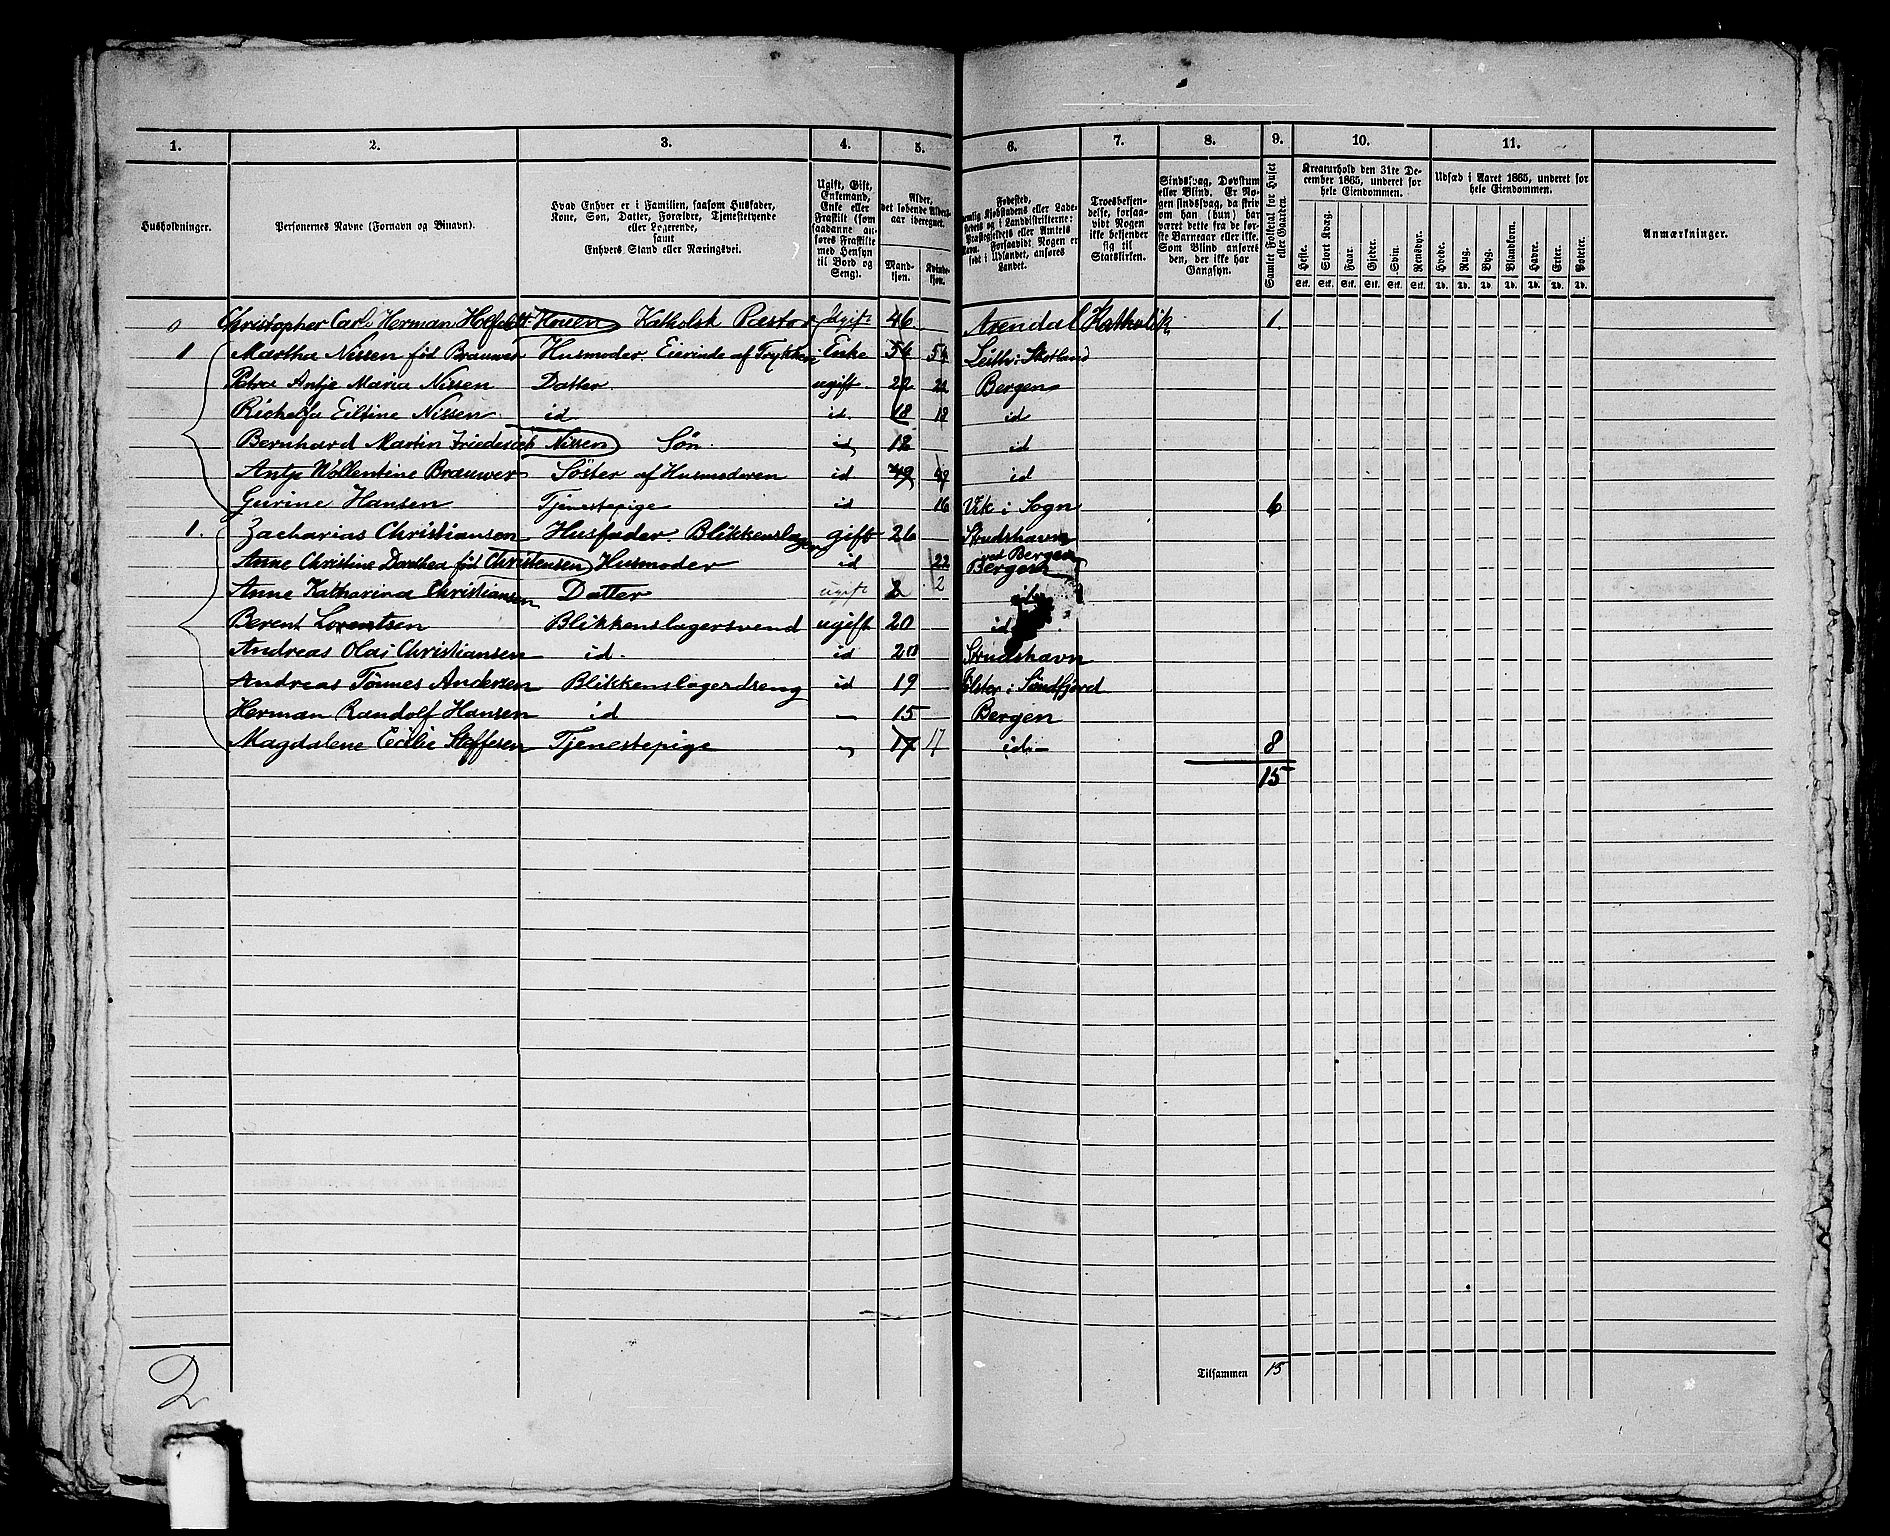 1. 2. 3. 4. 5. 6. 7. 8. 9. 10. 11.
Husholdninger.
Personernes Navne (Fornavn og Binavn).
Hvad Enhver er i Familien, saasom Husfader,
Kone, Søn, Datter, Forældre, Tjenestetyende
eller Logerende,
samt
Enhvers Stand eller Næringsvei.
Ugift, Gift,
Enkemand,
Enke eller
Fraskilt (som
saadanne an-
føres Fraskilte
med Hensyn
til Bord og
Seng).
Alder,
det løbende Alders-
aar iberegnet.
Mand-
kjøn.
Kvinde-
kjøn.
Fødested,
nemlig Kjøbstadens eller Lade-
stedets og i Landdistrikterne:
Præstegjeldets eller Amtets
Navn.
Forsaavidt Nogen er
født i Udlandet, anføres
Landet.
Troesbekjen-
delse, forsaa-
vidt Nogen
ikke bekjender
sig til
Statskirken.
Sindssvag, Døvstum
eller Blind. Er No-
gen sindssvag, da skriv
om han (hun) har
været dette fra de før-
ste Barneaar eller ikke.
Som Blind anføres
den, der ikke har
Gangsyn.
Samlet Folketal for Huset
eller Gaarden.
Kreaturhold den 31te De-
cember 1865, underet for
hele Eiendommen.
Heste. Stort Kvæg. Faar. Gjeder. Svin. Rensdyr.
Stk. Stk. Stk. Stk. Stk. Stk.
Udsæd i Aaret 1865, underet for
hele Eiendommen.
Hvede. Rug. Byg. Blandkorn. Havre. Erter. Poteter.
Td. Td. Td. Td. Td. Td. Td.
Anmærkninger.
0 Christopher Carl Herman Holfeldt Houen Katholsk Pastor Ugift 46 Arendal Katholik 1.
1 Martha Nissen fød Brauwer Husmoder. Eierinde af Trykkeri Enke 54 54 Leith i Skotland
Petra Antje Maria Nissen Datter. ugift 22 22 Bergen
Richelfa Eiltine Nissen id id. 18 18 id
Bernhard Martin Friederich Nissen Søn. id 12 id
Antje Wollentine Brauwer Søster af Husmoderen id 49 49 id
Gurine Hansen Tjenestepige id 16 Vik i Sogn 6
1. Zacharias Christiansen Husfader. Blikkenslager gift 26 Strudshavn
ved Bergen
Anne Christine Dorthea fød Christensen Husmoder id 22 Bergen
Anne Katharina Christiansen Datter ugift 2 2 id
Berent Lorentsen Blikkenslagersvend ugift 20 id
Andreas Olai Christiansen id. id 20 Strudshavn
Andreas Tønnes Andersen Blikkenslagerdreng id 19 Jølster i Søndfjord
Herman Randolf Hansen id — 15 Bergen
Magdalene Cecilie Steffesen Tjenestepige 17 17 id 8
15
Tilsammen 15
2